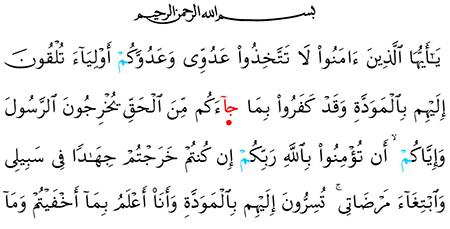 بسم الله الرحمن الرحيم
يَـٰٓأَيُّهَا ٱلَّذِينَ ءَامَنُوا۟ لَا تَتَّخِذُوا۟ عَدُوِّى وَعَدُوَّكُمْ أَوْلِيَآءَ تُلْقُونَ
إِلَيْهِم بِٱلْمَوَدَّةِ وَقَدْ كَفَرُوا۟ بِمَا جَآءَكُم مِّنَ ٱلْحَقِّ يُخْرِجُونَ ٱلرَّسُولَ
وَإِيَّاكُمْ ۙ أَن تُؤْمِنُوا۟ بِٱللَّهِ رَبِّكُمْ إِن كُنتُمْ خَرَجْتُمْ جِهَـٰدًا فِى سَبِيلِى
وَٱبْتِغَآءَ مَرْضَاتِى ۚ تُسِرُّونَ إِلَيْهِم بِٱلْمَوَدَّةِ وَأَنَا۠ أَعْلَمُ بِمَآ أَخْفَيْتُمْ وَمَآ